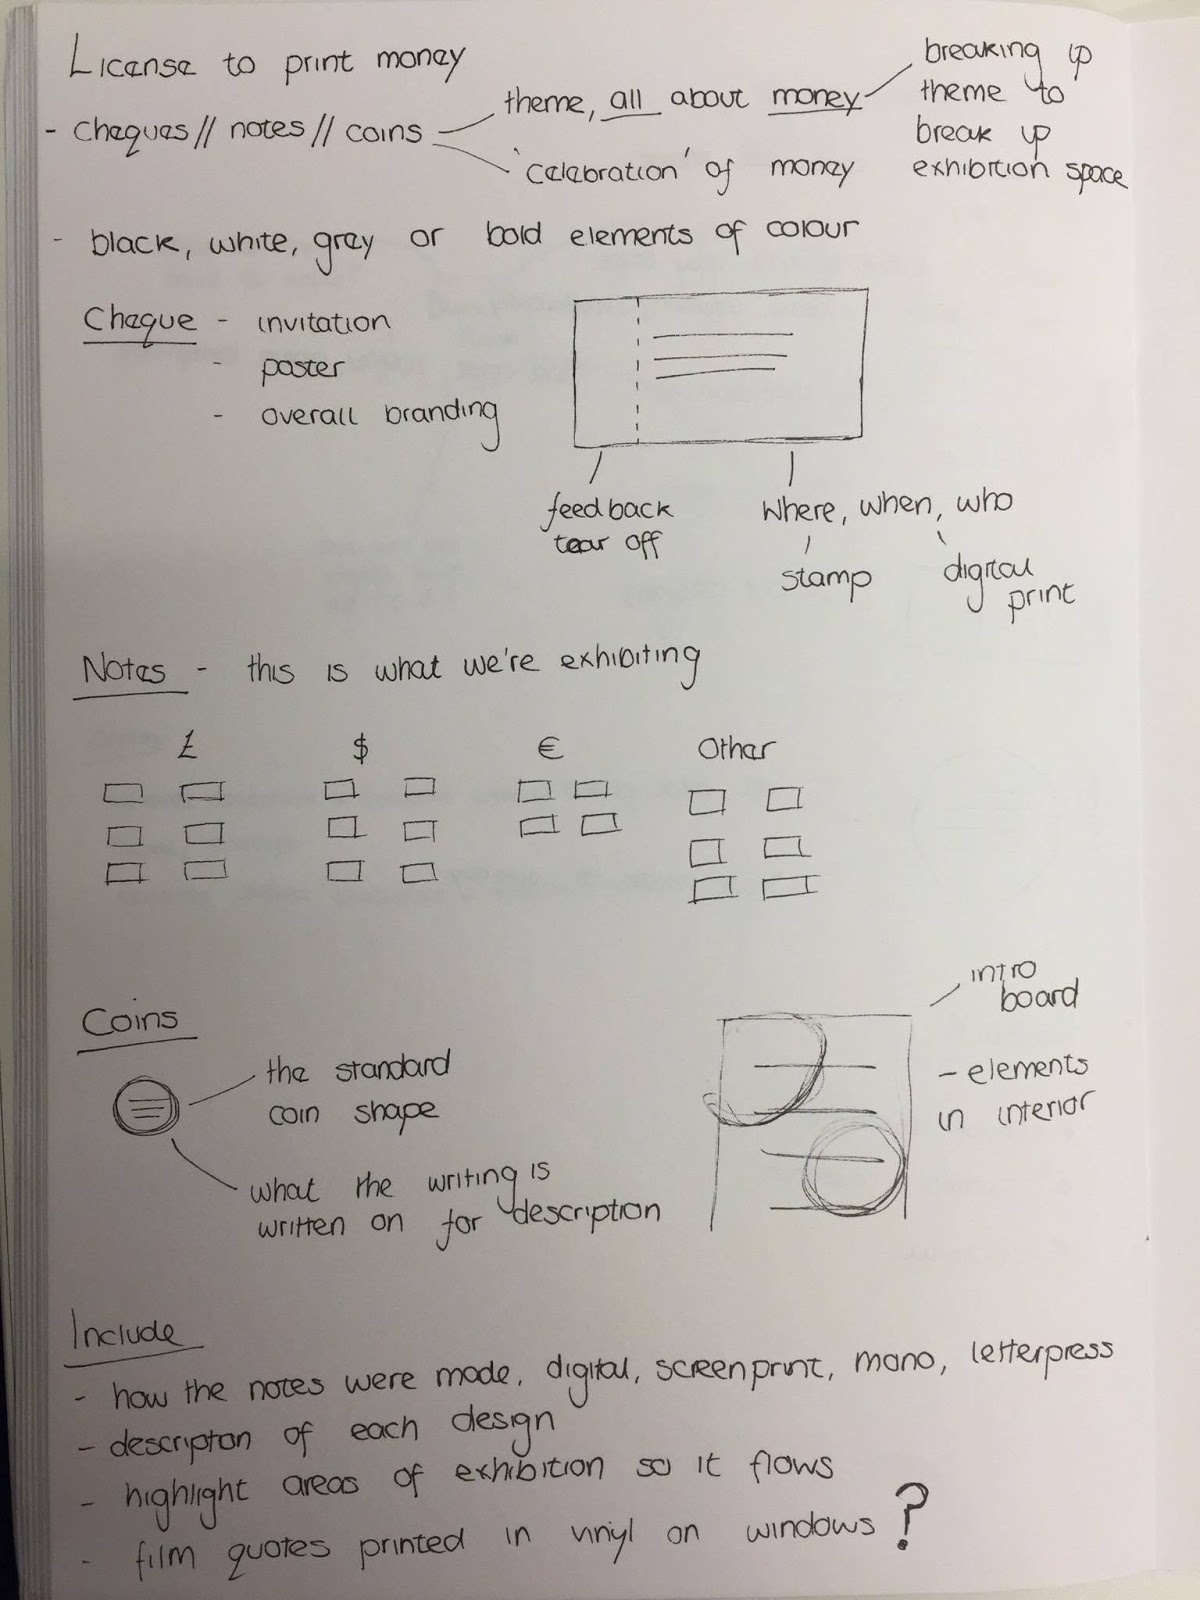 License to print money
- cheques // notes // coins
theme, all about money
'celebration' of money
breaking up
theme to
break up
exhibition space
- black, white, grey or bold elements of colour
Cheque - invitation
- poster
- overall branding
feedback
tear off
where, when, who
stamp
digital
print
Notes - this is what we're exhibiting
£ $ € Other
Coins
the standard
coin shape
what the writing is
written on for description
intro
board
- elements
in interior
Include
- how the notes were made, digital, screenprint, mono, letterpress
- descripton of each design
- highlight areas of exhibition so it flows
- film quotes printed in vinyl on windows ?